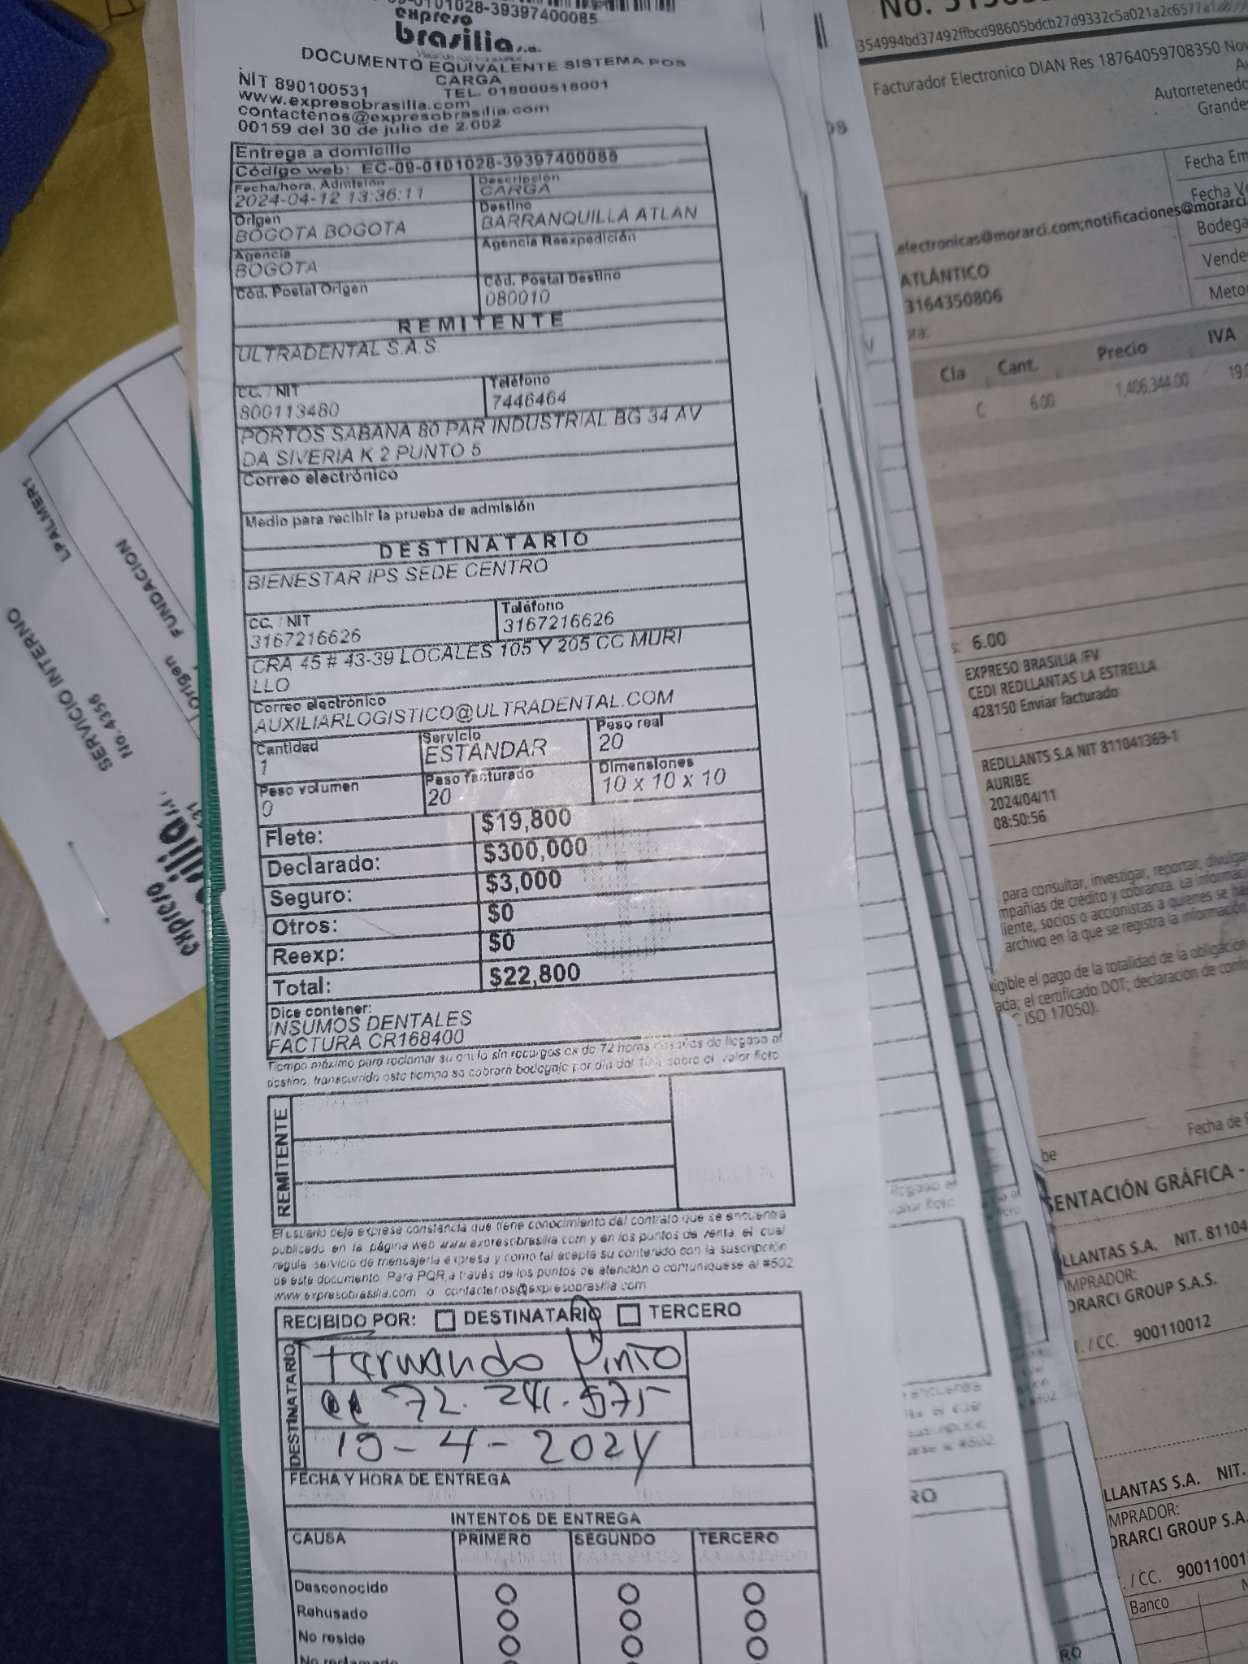 0101028-39397400085
expreso
brasilia s.a.
DOCUMENTO EQUIVALENTE SISTEMA POS
CARGA
NIT 890100531 TEL. 018000518001
www.expresobrasilia.com
contactenos@expresobrasilia.com
00159 del 30 de julio de 2.002
Entrega a domicilio
Código web: EC-09-0101028-39397400085
Fecha/hora, Admisión Descripción
2024-04-12 13:36:11 CARGA
Origen Destino
BOGOTA BOGOTA BARRANQUILLA ATLAN
Agencia Agencia Reexpedición
BOGOTA
Cód. Postal Origen Cód. Postal Destino
080010
REMITENTE
ULTRADENTAL S.A.S
CC. / NIT Teléfono
800113480 7446464
PORTOS SABANA 80 PAR INDUSTRIAL BG 34 AV
DA SIVERIA K 2 PUNTO 5
Correo electrónico
Medio para recibir la prueba de admisión
DESTINATARIO
BIENESTAR IPS SEDE CENTRO
CC. / NIT Teléfono
3167216626 3167216626
CRA 45 # 43-39 LOCALES 105 Y 205 CC MURI
LLO
Correo electrónico
AUXILIARLOGISTICO@ULTRADENTAL.COM
Cantidad Servicio Peso real
1 ESTANDAR 20
Peso volumen Peso facturado Dimensiones
0 20 10 x 10 x 10
Flete: $19,800
Declarado: $300,000
Seguro: $3,000
Otros: $0
Reexp: $0
Total: $22,800
Dice contener:
INSUMOS DENTALES
FACTURA CR168400
Tiempo máximo para reclamar su envío sin recargos es de 72 horas después de llegada al
destino, transcurrido este tiempo se cobrará bodegaje por día del 10% sobre el valor flete
REMITENTE
El usuario deja expresa constancia que tiene conocimiento del contrato que se encuentra
publicado en la página web www.expresobrasilia.com y en los puntos de venta, el cual
regula servicio de mensajería expresa y como tal acepta su contenido con la suscripción
de este documento. Para PQR a través de los puntos de atención o comuníquese al #502
www.expresobrasilia.com o contactenos@expresobrasilia.com
RECIBIDO POR: DESTINATARIO TERCERO
DESTINATARIO
Fernando Pinto
cc 72.241.575
19-4-2024
FECHA Y HORA DE ENTREGA
INTENTOS DE ENTREGA
CAUSA PRIMERO SEGUNDO TERCERO
Desconocido
Rehusado
No reside
No reclamado
LPALMER1
FUNDACION
origen
SERVICIO INTERNO
No. 4356
expreso
No.
354994bd37492ffbcd98605bdcb27d9332c5a021a2c6577a
Facturador Electronico DIAN Res 18764059708350 Nov
Autorretenedo
Grande
Fecha Em
Fecha Ve
electronicas@morarci.com;notificaciones@morarci
Bodega
ATLÁNTICO
Vende
3164350806
Meto
Cla Cant. Precio IVA
C 6.00 1,406,344.00 19.0
6.00
EXPRESO BRASILIA /FV
CEDI REDLLANTAS LA ESTRELLA
428150 Enviar facturado
REDLLANTS S.A NIT 811041369-1
AURIBE
2024/04/11
08:50:56
para consultar, investigar, reportar, divulga
mpañias de crédito y cobranza. La informac
liente, socios o accionistas a quienes se ha
archivo en la que se registra la información
xigible el pago de la totalidad de la obligación
ada; el certificado DOT; declaración de confo
ISO 17050).
Fecha de
be
SENTACIÓN GRÁFICA -
LLANTAS S.A. NIT. 81104
MPRADOR:
ORARCI GROUP S.A.S.
/ CC. 900110012
LLANTAS S.A. NIT.
MPRADOR:
ORARCI GROUP S.A.
/ CC. 90011001
Banco
RO
RO